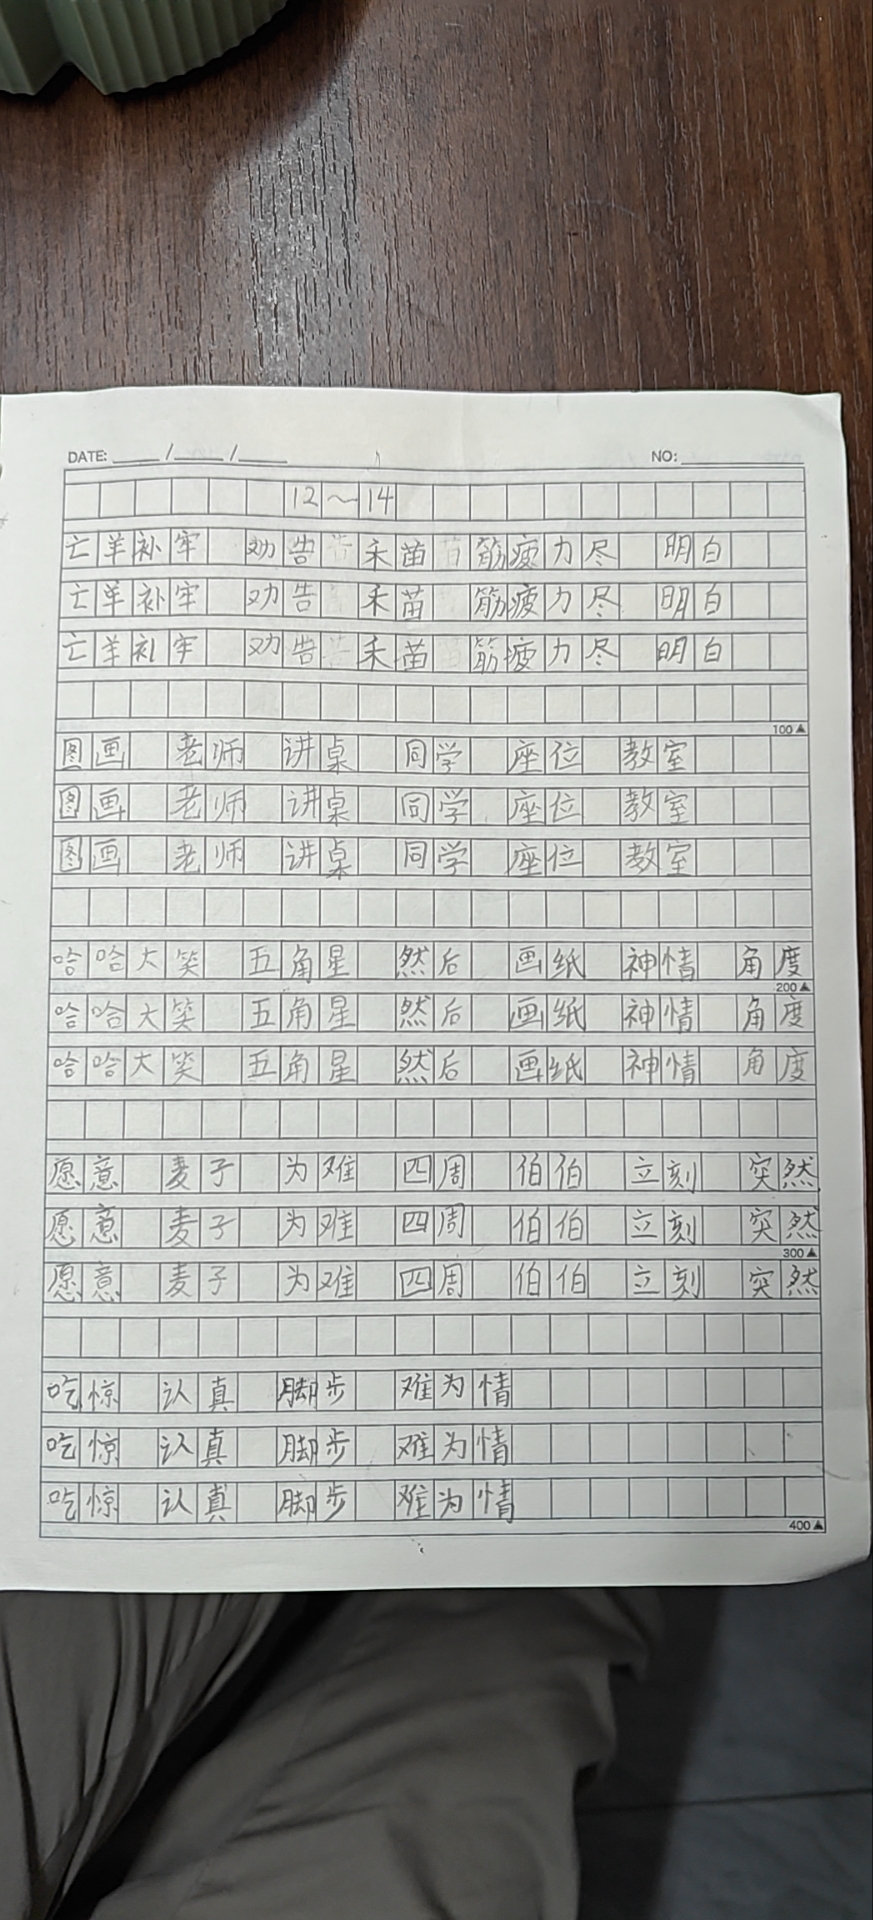 DATE: ____ / ____ / ____ NO: ____
12～14
亡羊补牢 劝告 禾苗 筋疲力尽 明白
亡羊补牢 劝告 禾苗 筋疲力尽 明白
亡羊补牢 劝告 禾苗 筋疲力尽 明白
100▲
图画 老师 讲桌 同学 座位 教室
图画 老师 讲桌 同学 座位 教室
图画 老师 讲桌 同学 座位 教室
哈哈大笑 五角星 然后 画纸 神情 角度
200▲
哈哈大笑 五角星 然后 画纸 神情 角度
哈哈大笑 五角星 然后 画纸 神情 角度
愿意 麦子 为难 四周 伯伯 立刻 突然
愿意 麦子 为难 四周 伯伯 立刻 突然
300▲
愿意 麦子 为难 四周 伯伯 立刻 突然
吃惊 认真 脚步 难为情
吃惊 认真 脚步 难为情
吃惊 认真 脚步 难为情
400▲